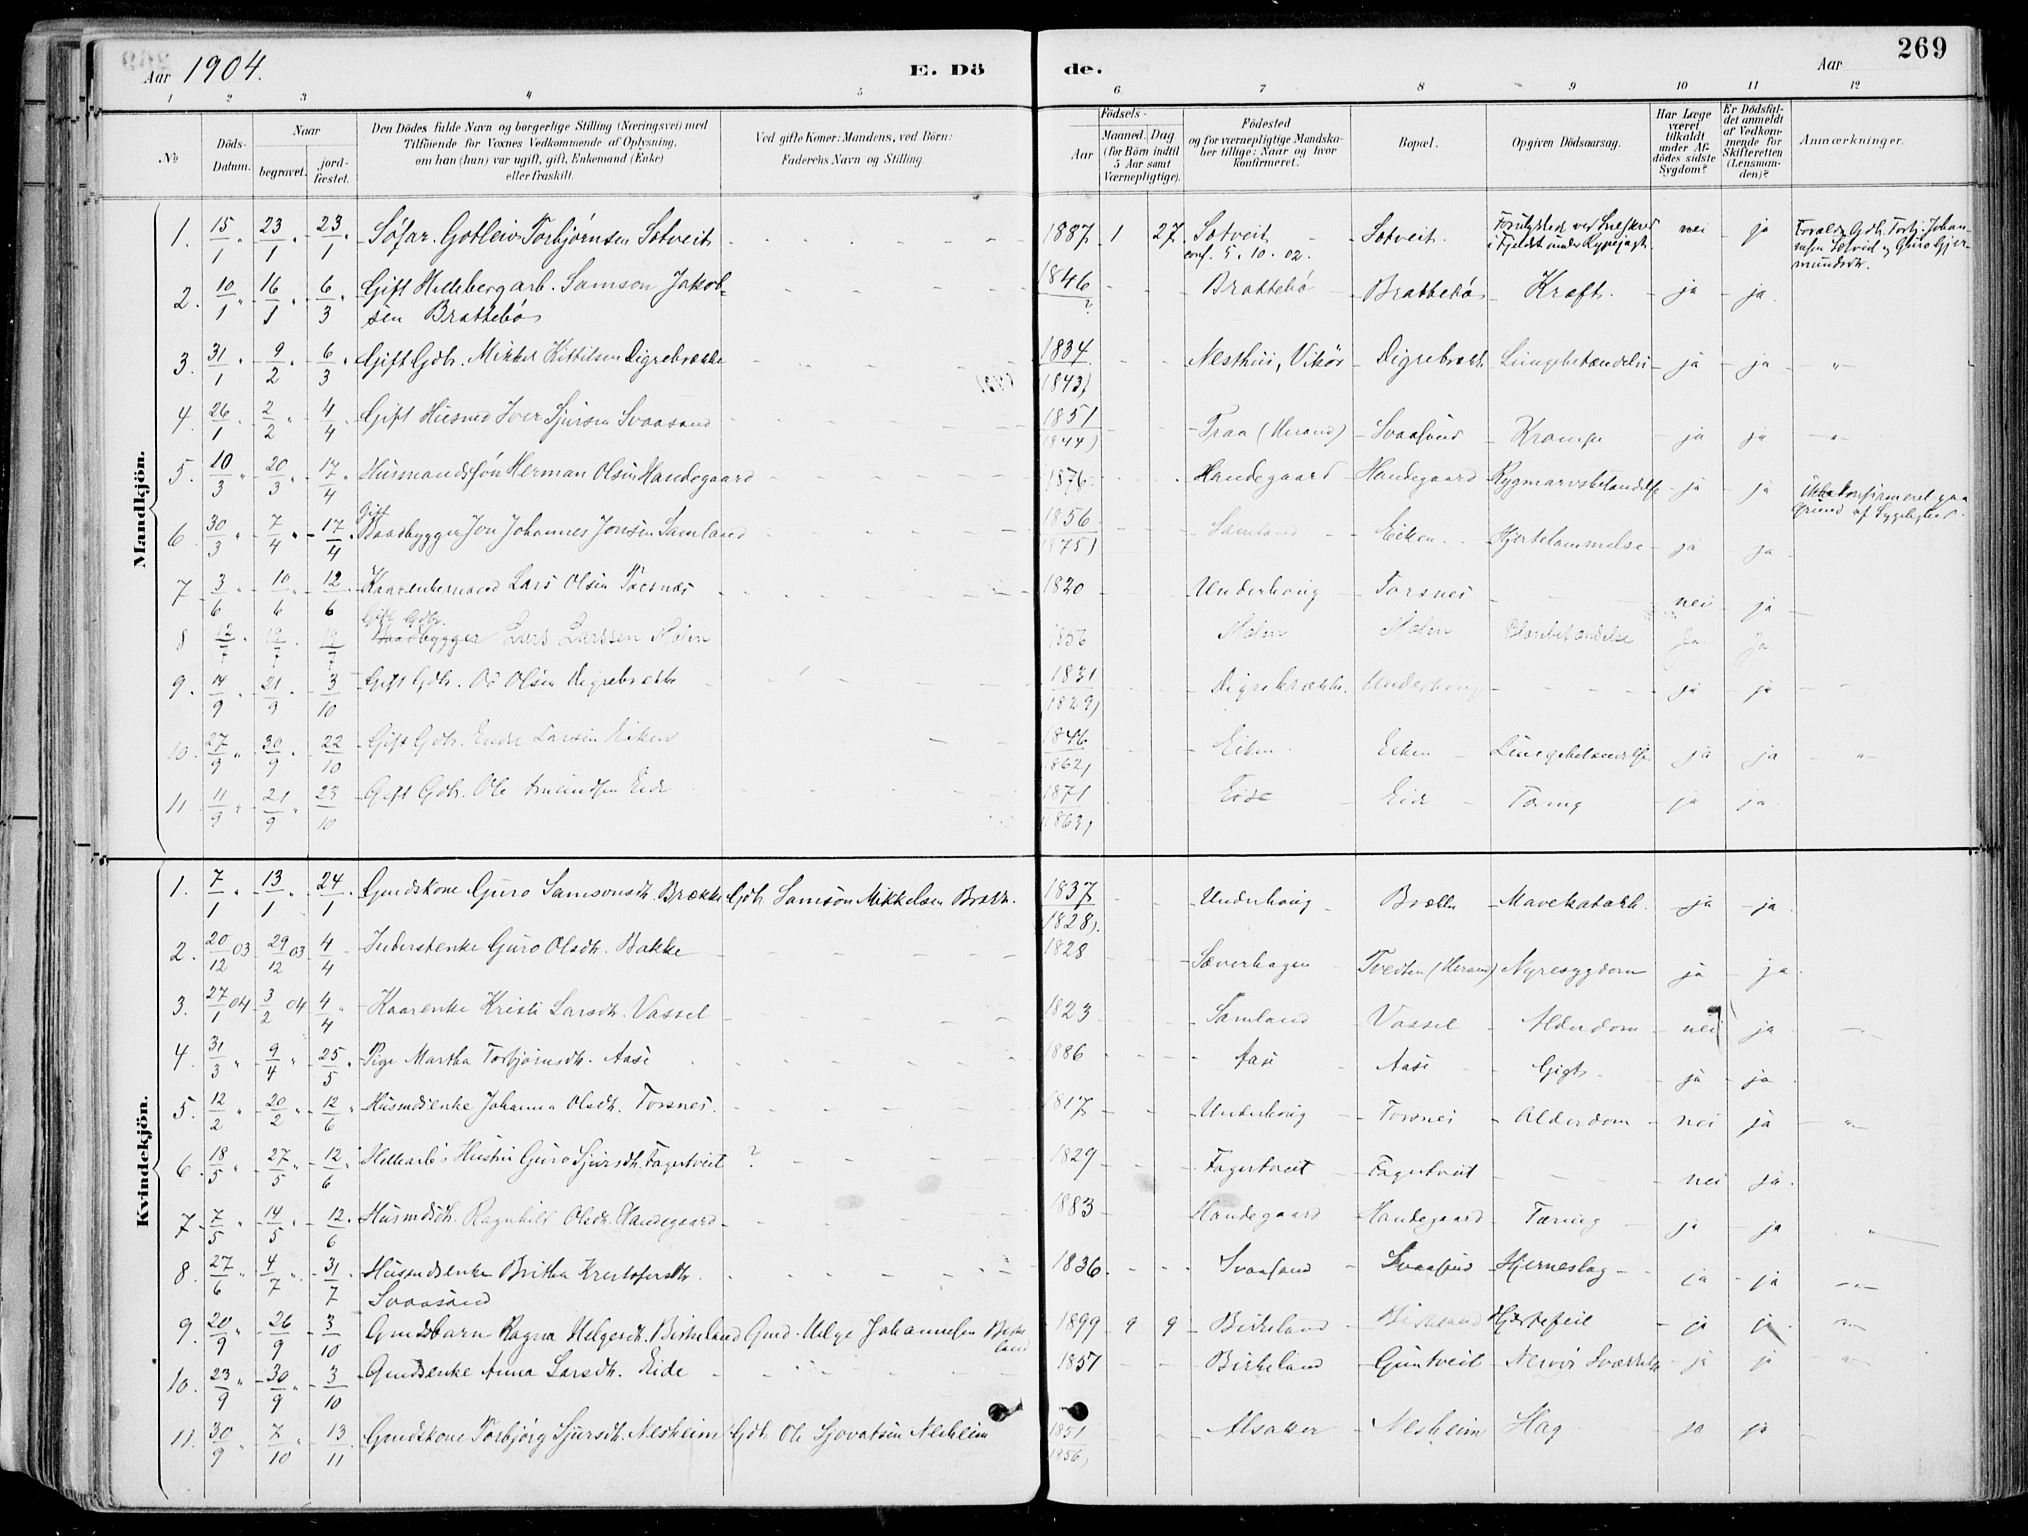 Aar 1904. E. Dö de. Aar 269
1 2 3 4 5 6 7 8 9 10 11 12
No Döds-Datum. Naar begravet. jord-fæstet. Den Dödes fulde Navn og borgerlige Stilling (Næringsvei) med Tilföiende for Voxnes Vedkommende af Oplysning, om han (hun) var ugift, gift, Enkemand (Enke) eller fraskilt. Ved gifte Koner: Mandens, ved Börn: Faderens Navn og Stilling. Födsels- Aar Maaned. Dag (for Börn indtil 5 Aar samt Værnepligtige). Födested og for værnepligtige Mandskaber tillige: Naar og hvor konfirmeret. Bopæl. Opgiven Dödsaarsag. Har Læge været tilkaldt under Afdödes sidste Sygdom? Er Dödsfaldet anmeldt af Vedkommende for Skifteretten (Lensmanden)? Anmærkninger.
Mandkjön.
1. 15/1 " 23/1 " 23/1 " Söfar. Gotleiv Torbjørnsen Sotveit 1887 1 27 Sotveit conf. 5. 10. 02. Sotveit. Forulykket ved Sneskred i Fjeldet under Rypejagt. nei ja
2. 10/1 " 16/1 " 6/3 " Gift Hellebergarb. Samson Jakobsen Brattebö 1846 ? Brattebö Brattebö Kræft. ja ja
3. 31/1 " 9/2 " 6/3 " Gift Gdbr. Mikkel Kittilsen Digrebrække 1834 1843) Nesthus, Vikör Digrebrekk Lungebetændelse ja ja "
4. 26/1 " 2/2 " 4/4 Gift Husmd Iver Sjursen Svaasand 1851 1844) Traa (Herand) Svaasand Krampe ja ja "
5. 10/3 " 20/3 " 17/4 Husmandssøn Herman Olsen Handegaard 1876 Handegaard Handegaard Rygmarvsbetændelse ja ja Ikke konfirmeret paa Grund af Sygelighed.
6. 30/3 " 7/4 " 17/4 Gift Baadbygger Jon Johannes Jonsen Samland 1856 1875) Samland Eiken Hjertelammelse ja ja
7. 3/6 10/6 12/6 Kaarenkemand Lars Olsen Torsnes 1820 Underhoug Torsnes nei ja
8 12/7 19/7 19/7 Gift Gdbr. Baadbygger Lars Larssen Molin 1856 Molin Molin Ja Ja
9. 14/9 " 21/9 " 3/10 Gift Gdbr. Od Olsen Digrebrekk 1831 1829) Digrebrække. Underhoug ja ja
10. 27/9 " 30/9 " 22/10 Gift Gdbr. Endre Larsen Eiken 1846 1862) Eiken Eiken Lungebetændelse ja ja "
11 11/9 " 21/9 " 23/10 Gift Gdbr. Ole Amundsen Eide 1871 1863) Eide Eide Tæring ja ja
Kvindekjön.
1. 7/1 " 13/1 " 24/1 Gmdskone Guro Samsonsdtr. Brække Gdbr Samson Mikkelsen Brekk. 1837 1828) Underhoug Brække Mavekatarrh. ja ja
2. 20/12 03 29/12 03 4/4 Inderstenke Guro Olsdtr. Bakke 1828 Sæverhagen Tvedten (Herand) Nyresygdom ja ja
3. 27/1 04 3/2 04 4/4 " Kaarenke Kristi Larsdtr. Vassel 1823 Samland Vassel Alderdom nei ja
4. 31/3 " 9/4 " 25/5 Pige Martha Torbjörnsdtr. Aase 1886 Aase Aase Gigt ja ja
5. 12/2 " 20/2 " 12/6 " Husmdsenke Johanna Olsdtr. Torsnes. 1817 Underhoug Torsnes Alderdom nei ja "
6. 18/5 " 27/5 " 12/6 Hellearb's Hustru Guro Sjursdtr. Fagertveit ? 1829 Fagertveit Fagertveit nei ja
7 7/5 " 14/5 " 12/6 Husmdsdtr. Ragnhild Olsdtr. Handegaard 1883 Handegaard Handegaard Tæring ja ja "
8. 27/6 " 4/7 " 31/7 Husmdsenke Britha Kristofersdtr. Svaasand 1836 Svaasand Svaasand Hjerneslag ja ja
9. 20/9 " 26/9 " 3/10 Gmdsbarn Ragna Helgesdtr. Birkeland Gmd. Helge Johannesen Birkeland 1899 9 9 Birkeland Birkeland Hjertefeil ja ja
10. 23/9 " 30/9 " 3/10 Gmdsenke Anna Larsdtr. Eide 1857 Birkeland Guntveit Nervös Svækkelse ja ja
11. 30/9 " 7/10 13/11 Gmdskone Torbjörg Sjursdtr. Nesheim Gdbr. Ole Sjovatsen Nesheim 1851 1856) Alsaker Nesheim Slag ja ja